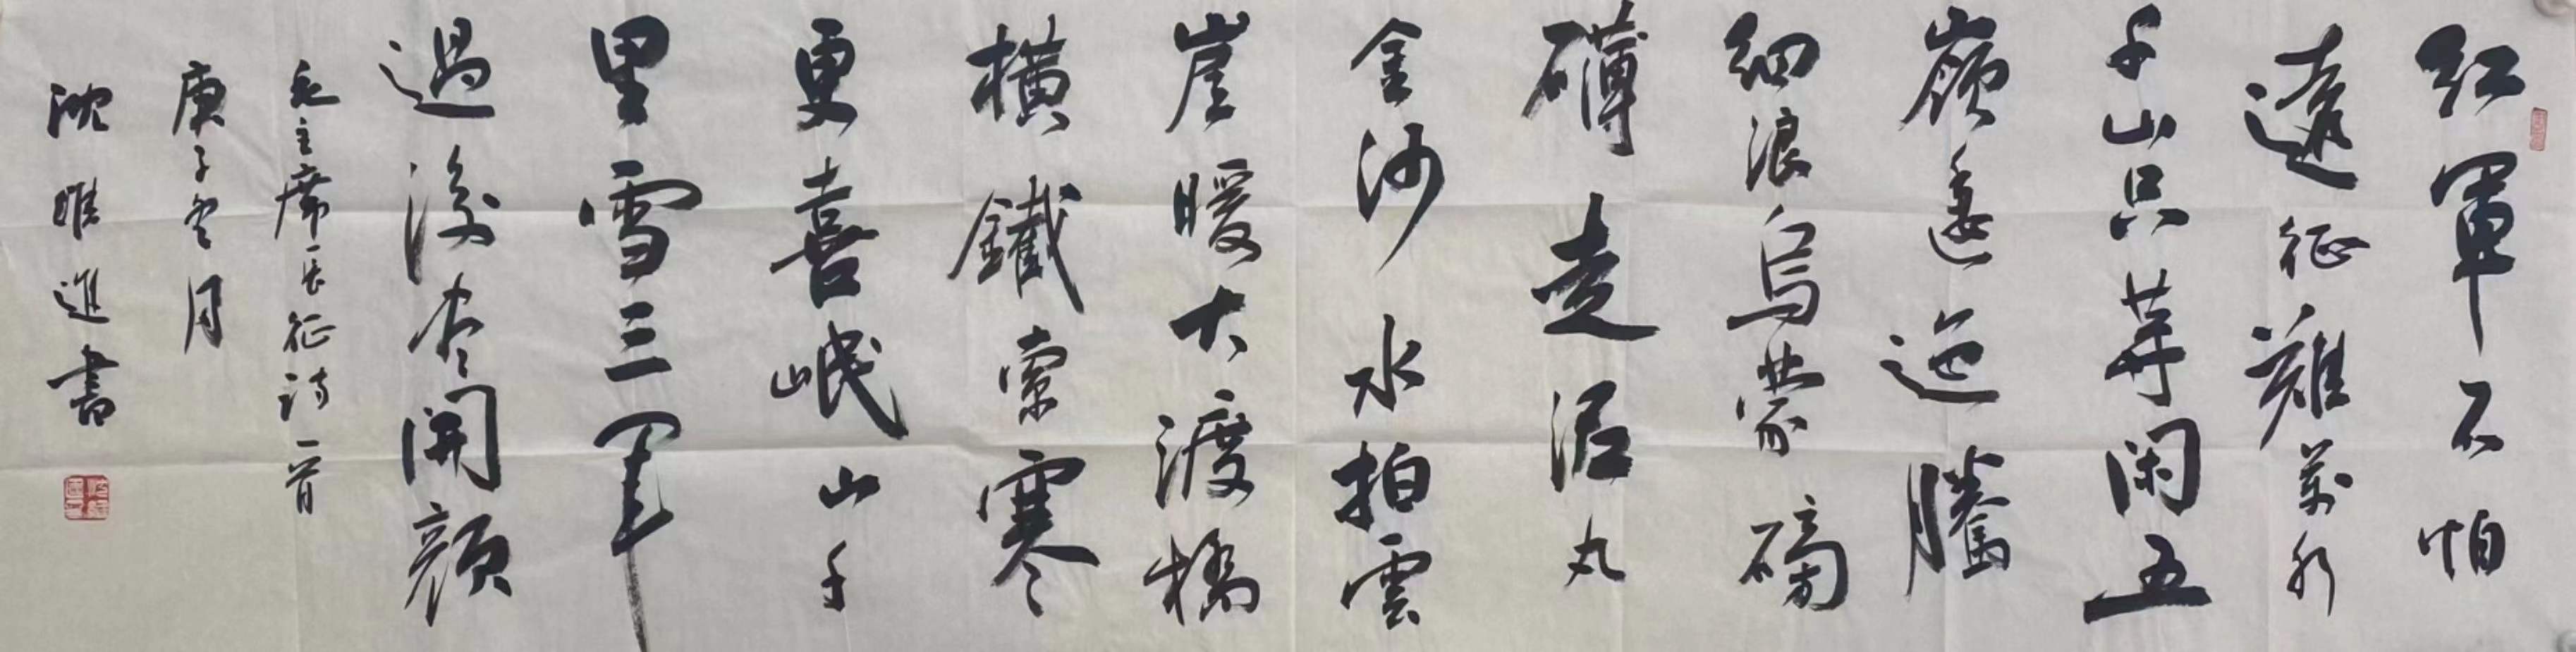 紅軍不怕
遠征難萬水
千山只等閑五
嶺逶迤騰
細浪烏蒙磅
礴走泥丸
金沙水拍雲
崖暖大渡橋
橫鐵索寒
更喜岷山千
里雪三軍
過後盡開顏
毛主席長征詩一首
庚子冬月
沈惟進書